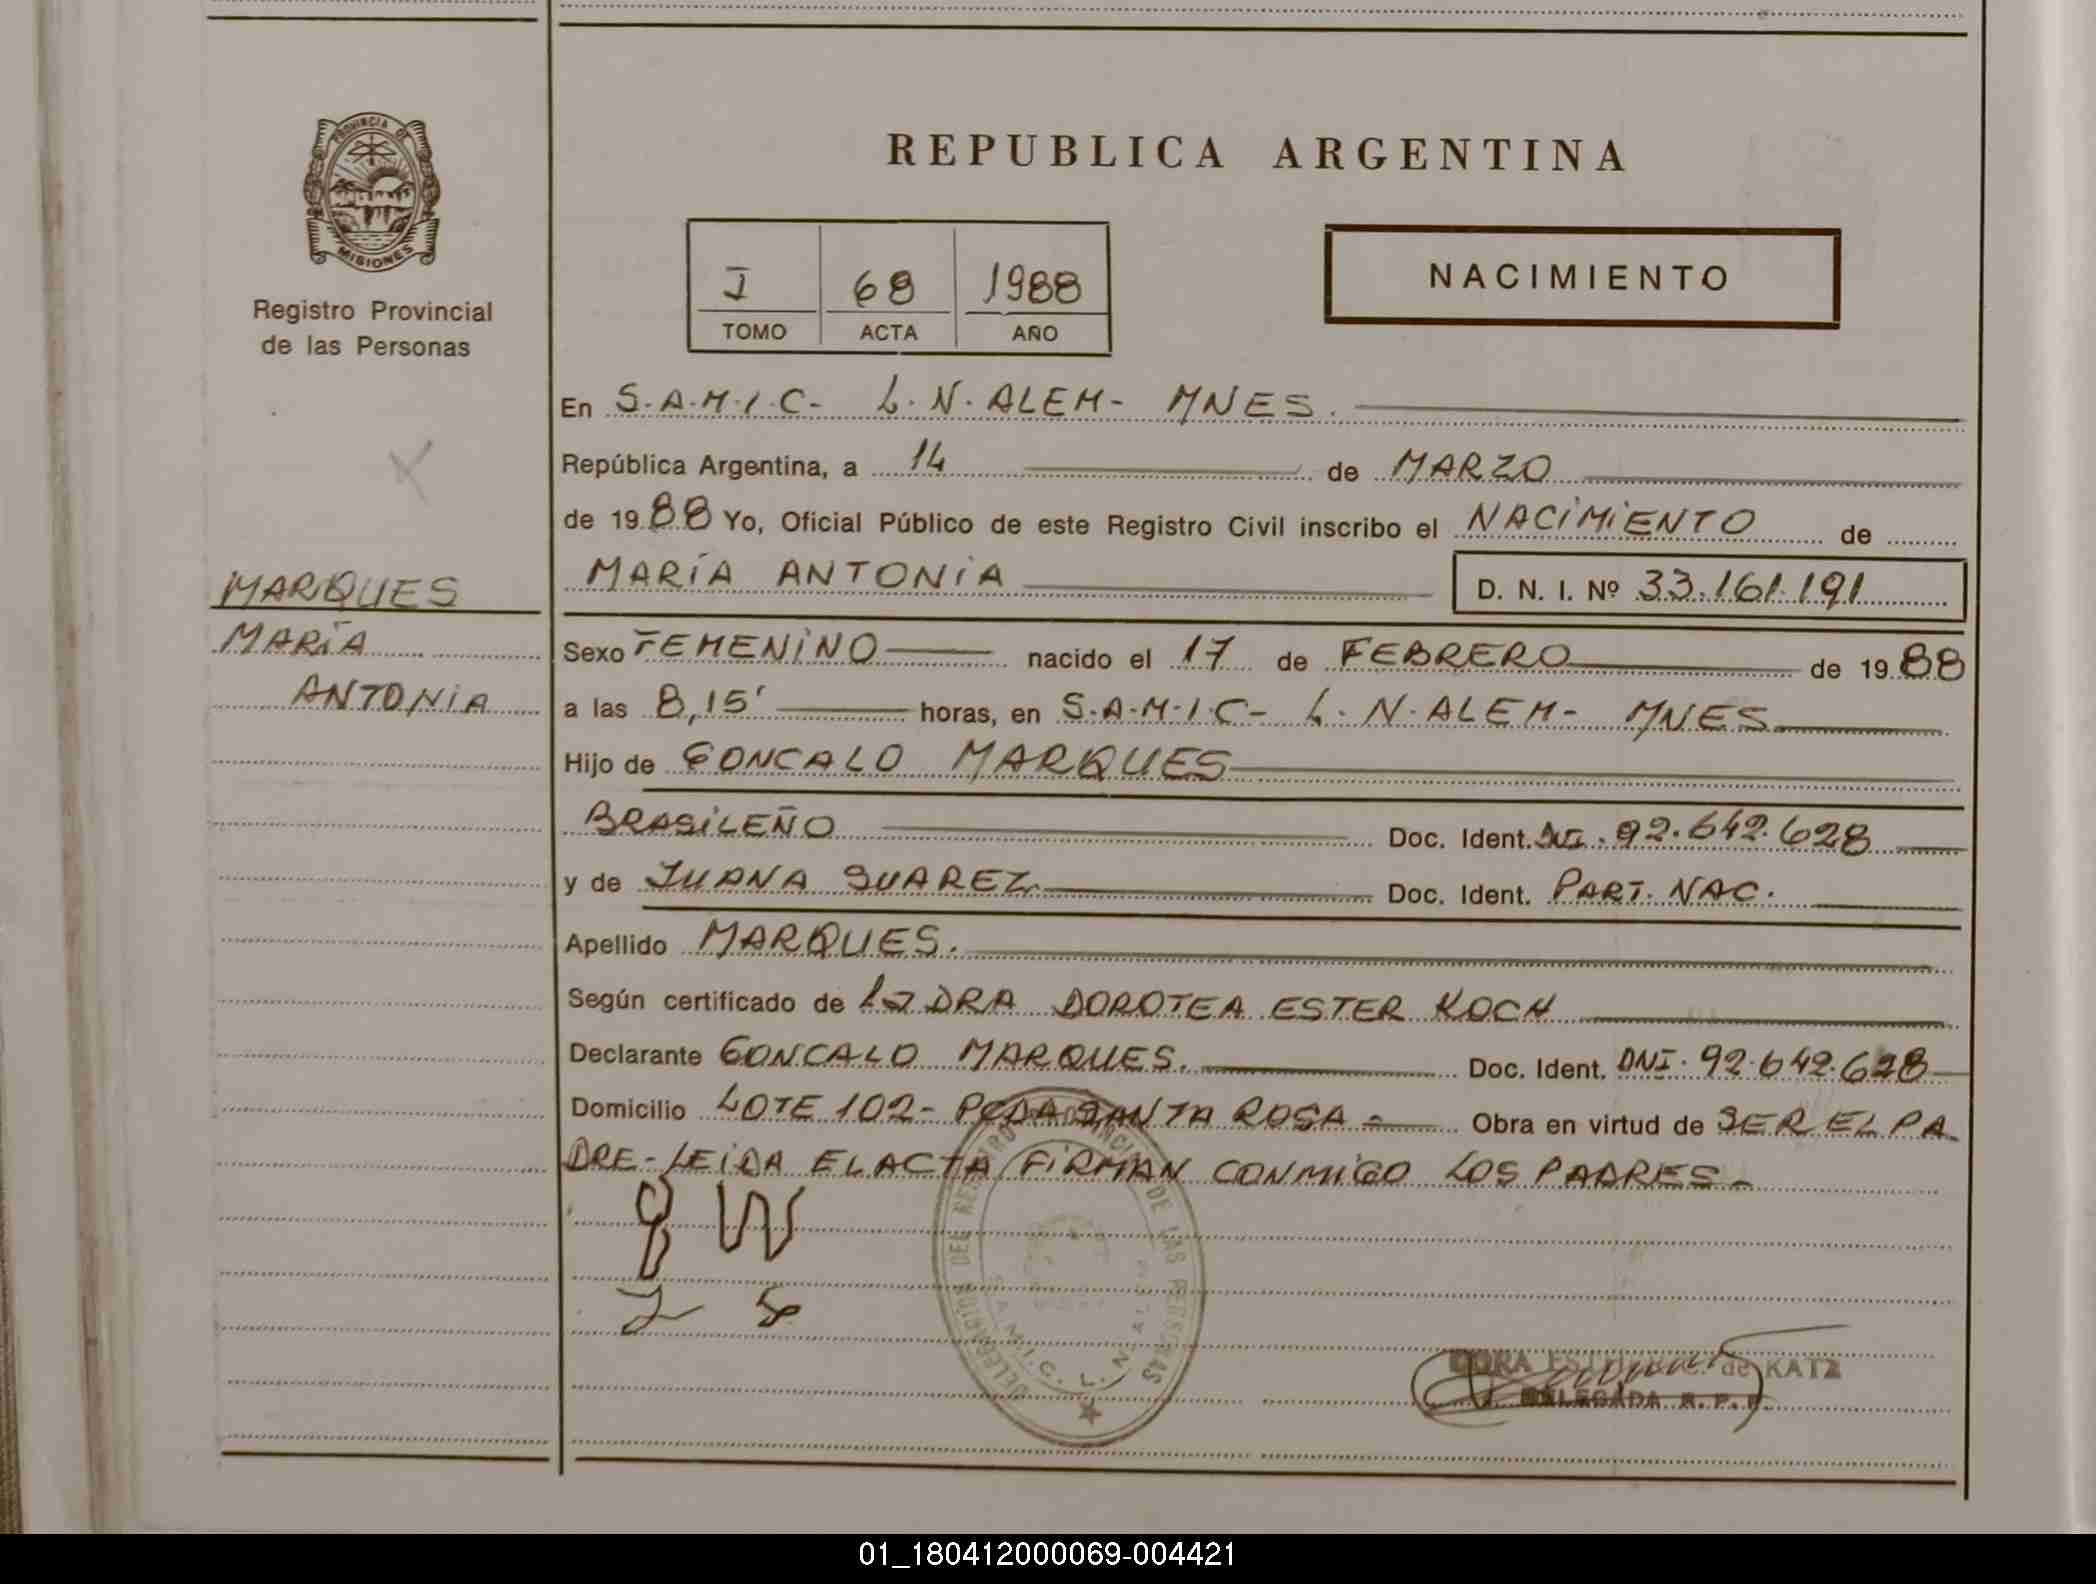 PROVINCIA DE
MISIONES
Registro Provincial
de las Personas
MARQUES
MARÍA
ANTONIA
REPUBLICA ARGENTINA
I 68 1988
TOMO ACTA AÑO
NACIMIENTO
En S.A.M.I.C- L.N.ALEM- MNES.
República Argentina, a 14 de MARZO
de 1988 Yo, Oficial Público de este Registro Civil inscribo el NACIMIENTO de
MARÍA ANTONIA D. N. I. Nº 33.161.191
Sexo FEMENINO nacido el 17 de FEBRERO de 1988
a las 8,15' horas, en S.A.M.I.C- L.N.ALEM- MNES
Hijo de GONCALO MARQUES
BRASILEÑO Doc. Ident. DNI. 92.642.628
y de JUANA SUAREZ Doc. Ident. PART. NAC.
Apellido MARQUES.
Según certificado de LA DRA DOROTEA ESTER KOCH
Declarante GONCALO MARQUES. Doc. Ident. DNI. 92.642.628
Domicilio LOTE 102- PCDA SANTA ROSA - Obra en virtud de SER EL PA
DRE- LEIDA EL ACTA FIRMAN CONMIGO LOS PADRES-
J S
DEL REGISTRO PROVINCIAL DE LAS PERSONAS
S.A.M.I.C. L.N. ALEM
DORA de KATZ
DELEGADA R. P. P.
01_180412000069-004421